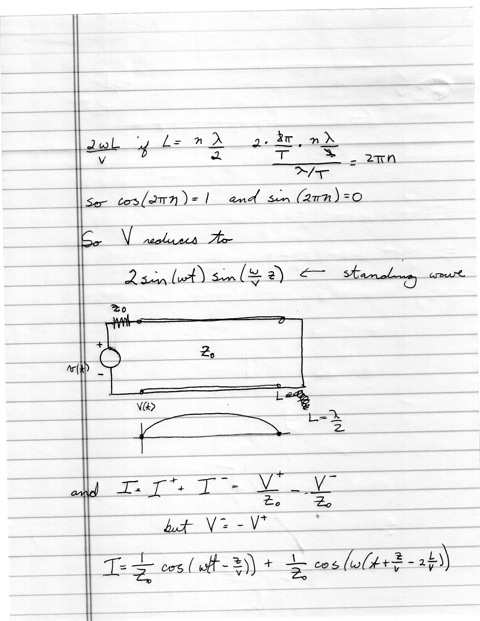 2ωL/v if L = n λ/2 2 · 2π/T · n λ/2 / λ/T = 2πn
so cos(2πn) = 1 and sin(2πn) = 0
So V reduces to
2 sin(ωt) sin(ω/v z) ← standing wave
Z₀
+
Z₀
v(t)
-
V(t) L
L = λ/2
and I = I⁺ + I⁻ = V⁺/Z₀ - V⁻/Z₀
but V⁻ = - V⁺
I = 1/Z₀ cos(ω(t - z/v)) + 1/Z₀ cos(ω(t + z/v - 2L/v))